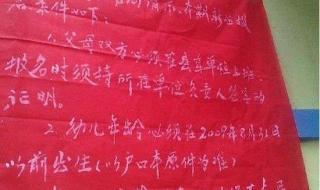 名条件如下:
1.父母双方必须在县直单位上班,
报名时须持所在单位负责人签字的
证明。
2.幼儿年龄必须在2009年8月31日
以前出生(以户口本原件为准)